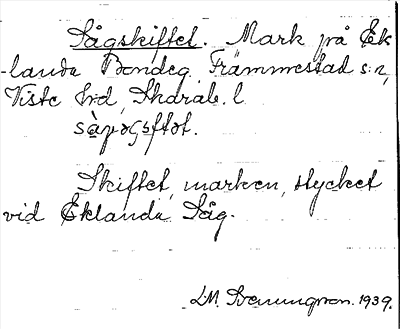 Sågskiftet. Mark på Ek-
landa Bondeg. Främmestad s:n,
Viste hd, Skarab. l.
Skiftet, marken, stycket
vid Eklanda Såg.
1939.